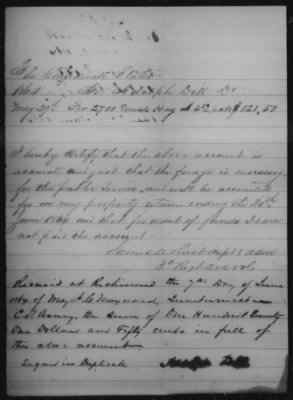 The Confederate States
1864 To Adolph Dill Dr
May 29th For 2700 Pounds Hay at 4 1/2 cts $121,50
I hereby certify that the above account is
accurate and just that the forage is necessary
for the public service, and will be accounted
for on my property return ending the 30th
June 1864 and that for want of funds I have
not paid the account
Capt & asm
Received at Richmond the 7th Day of June
1864 of Maj Maynard Quartermaster
C.S. Army, the sum of One Hundred Twenty
One Dollars and Fifty cents in full of
the above account
Signed in Duplicate Adolph Dill